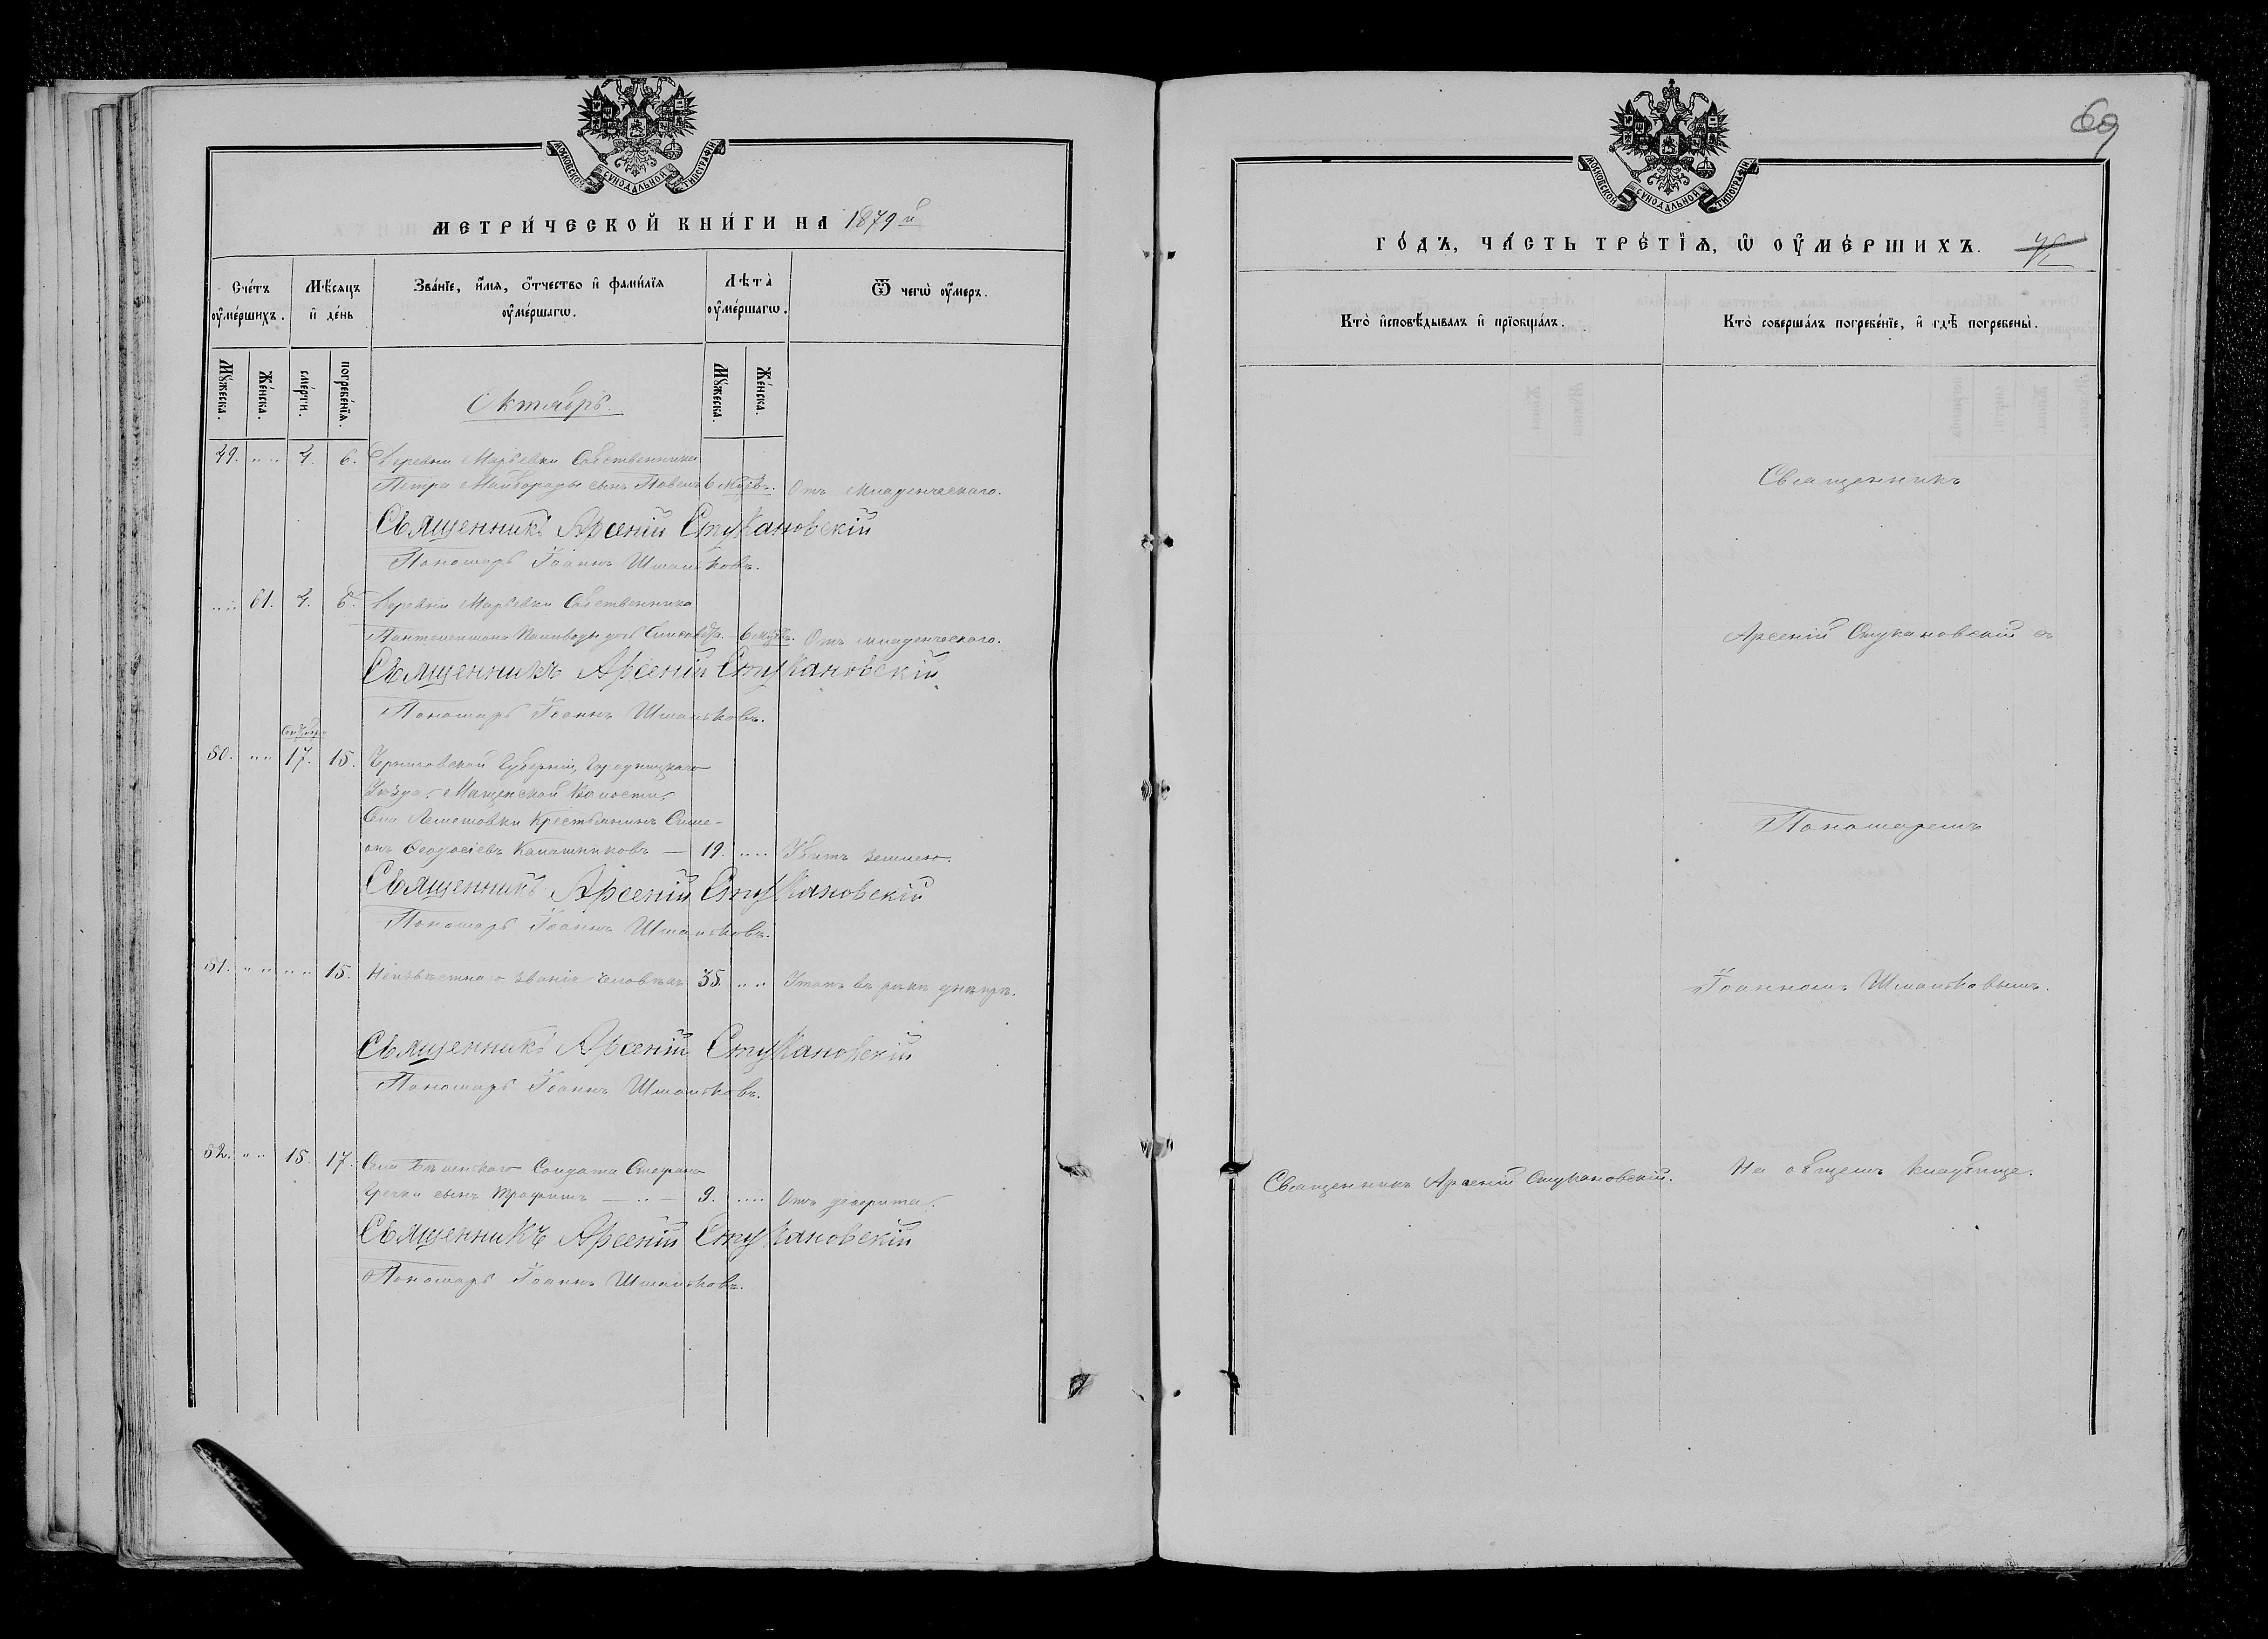 МОСКОВСКОЙ СѴНОДАЛЬНОЙ ТИПОГРАФІИ
МЕТРИ́ЧЕСКОЙ КНИ́ГИ НА 1879 й
Сче́тъ оу҆ме́ршихъ.
Мѣ́сяцъ и҆ де́нь
Зва́нїе, и҆́мя, о҆́тчество и҆ фами́лїя оу҆ме́ршагѡ.
Лѣ́та̀ оу҆ме́ршагѡ.
Ѿ чегѡ̀ оу҆́меръ.
Мꙋ́жеска.
Же́нска.
сме́рти.
погребе́нїя.
Мꙋ́жеска.
Же́нска.
Октябрь.
49. „ „ 4. 6. Деревни Марьевки Собственника
Петра Майбороды сынъ Павелъ 6 мѣс. Отъ младенческаго.
Священникъ Арсеній Стукановскій
Пономарь Іоаннъ Шмальковъ.
„ „ 61. 4. 6. Деревни Марьевки Собственника
Пантелеимона дочь Елисавета. 6 мѣс. Отъ младенческаго.
Священникъ Арсеній Стукановскій
Пономарь Іоаннъ Шмальковъ.
Сентября
50. „ „ 17. 15. Черниговской Губерніи, Городницкаго
Уѣзда, Волости,
Села Крестьянинъ Симе-
онъ Ѳеодосіевъ Калашниковъ — 19. „ „ Убитъ землею.
Священникъ Арсеній Стукановскій
Пономарь Іоаннъ Шмальковъ.
51. „ „ „ „ 15. Неизвѣстнаго званія человѣкъ 35. „ „ Утонъ въ рѣкѣ Днѣпрѣ.
Священникъ Арсеній Стукановскій
Пономарь Іоаннъ Шмальковъ.
52. „ „ 15. 17. Села Бѣленькаго Солдата Стефана
Гречки сынъ Трофимъ — „ — 9. „ „ Отъ дефтерита.
Священникъ Арсеній Стукановскій
Пономарь Іоаннъ Шмальковъ.
69
МОСКОВСКОЙ СѴНОДАЛЬНОЙ ТИПОГРАФІИ
ГО́ДЪ, ЧА́СТЬ ТРЕ́ТЇѦ, Ѡ҆ ОУ҆МЕ́РШИХЪ.
Кто̀ и҆сповѣ́дывалъ и҆ прїѡбща́лъ.
Кто̀ соверша́лъ погребе́нїе, и҆ гдѣ̀ погребены̀.
Священникъ
Арсеній Стукановскій съ
Пономаремъ
Іоанномъ Шмальковымъ.
Священникъ Арсеній Стукановскій.
На общемъ кладбище.